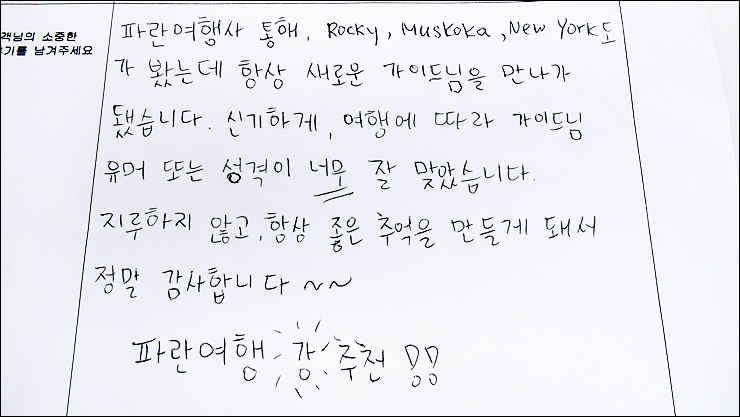 객님의 소중한
기를 남겨주세요
파란여행사 통해, Rocky, Muskoka, New York도
가 봤는데 항상 새로운 가이드님을 만나가
됐습니다. 신기하게, 여행에 따라 가이드님
유머 또는 성격이 너무 잘 맞았습니다.
지루하지 않고, 항상 좋은 추억을 만들게 돼서
정말 감사합니다 ~~
파란여행 강 추천